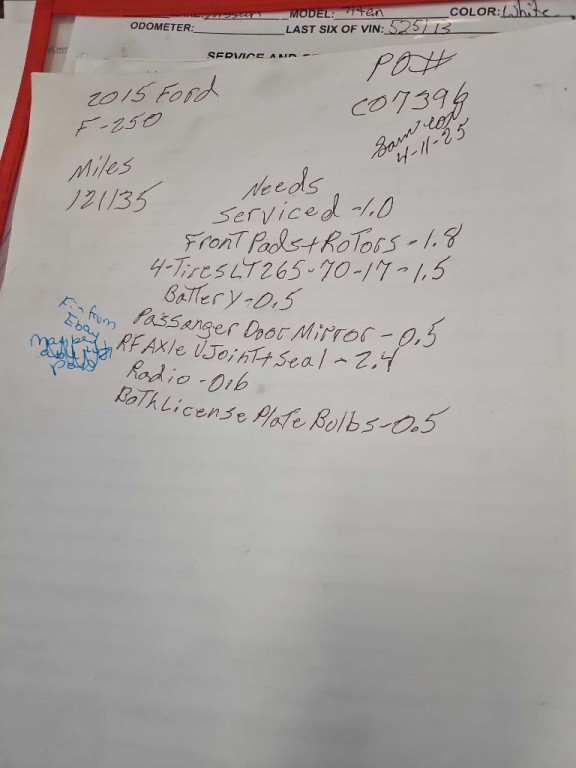 MODEL: Titan COLOR: White
ODOMETER: LAST SIX OF VIN: 525113
SERVICE AND
2015 Ford
F-250
PO#
C07396
4-11-25
Miles
121135
Needs
Serviced - 1.0
Front Pads + Rotors - 1.8
4-Tires LT265-70-17 - 1.5
Battery - 0.5
Passanger Door Mirror - 0.5
RF Axle UJoint + Seal - 2.4
Radio - 0.6
Both License Plate Bulbs - 0.5
from
Ebay